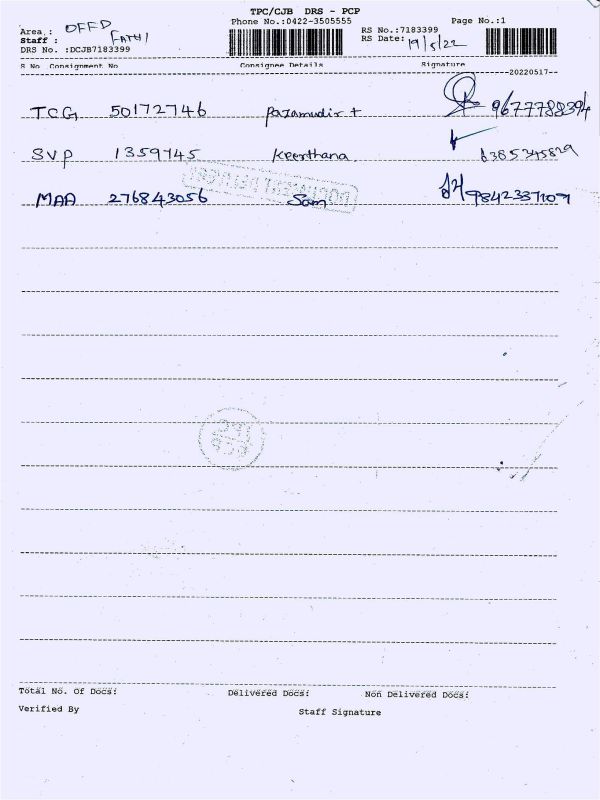 TPC/CJB DRS - PCP
Area : OFFD Phone No.:0422-3505555 RS No.:7183399 Page No.:1
Staff : FATHI RS Date: 19/5/22
DRS No. :DCJB7183399
S No Consignment No Consignee Details Signature
--20220517--
TCG 50172746 pazamudir + 9677788394
SVP 1359745 Keerthana 6385345829
MAA 276843056 Sam 9842337109
Total No. Of Docs: Delivered Docs: Non Delivered Docs:
Verified By Staff Signature